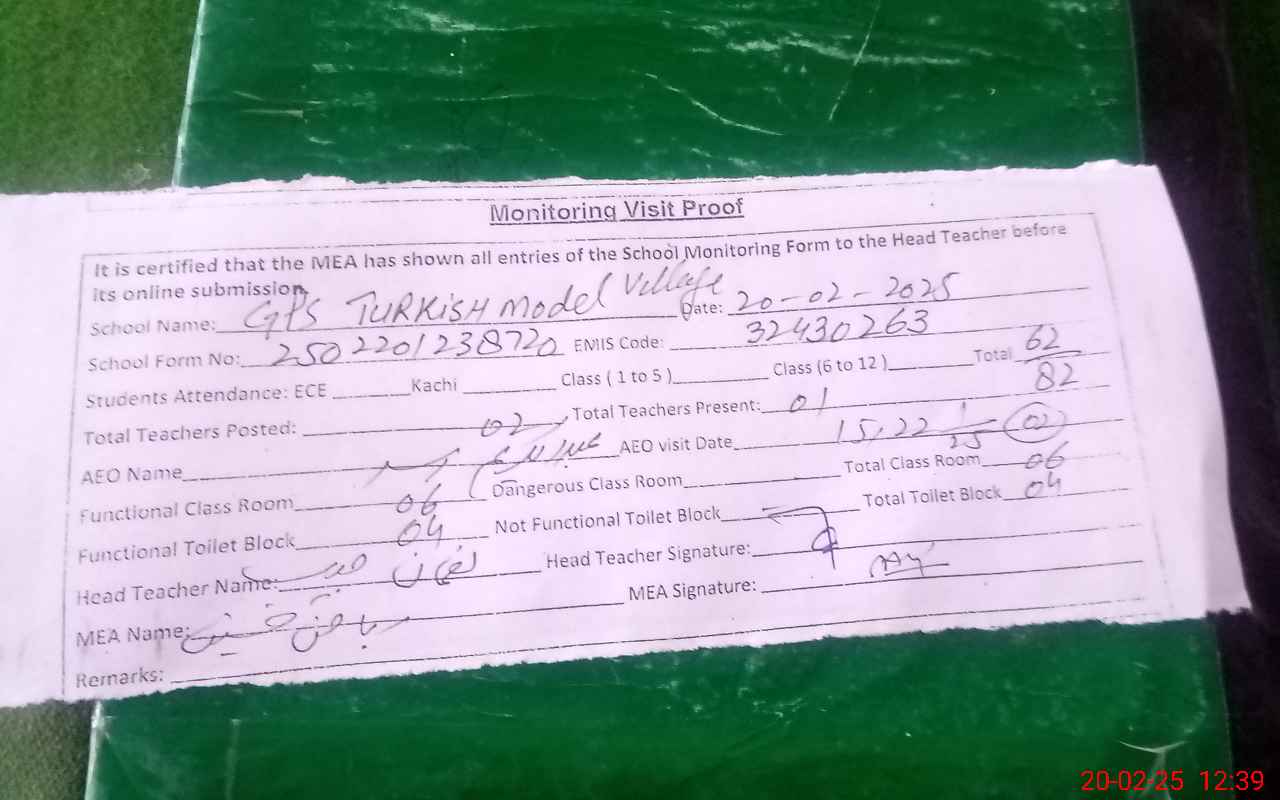 Monitoring Visit Proof
It is certified that the MEA has shown all entries of the School Monitoring Form to the Head Teacher before
its online submission.
School Name: GPS TURKISH Model Village Date: 20-02-2025
School Form No: 2502201238720 EMIS Code: 32430263
Students Attendance: ECE Kachi Class ( 1 to 5 ) Class (6 to 12 ) Total 62/82
Total Teachers Posted: 02 Total Teachers Present: 01
AEO Name AEO visit Date 15,22 1/25 02
Functional Class Room 06 Dangerous Class Room Total Class Room 06
Functional Toilet Block 04 Not Functional Toilet Block Total Toilet Block 04
Head Teacher Name: Head Teacher Signature:
MEA Name: MEA Signature:
Remarks:
20-02-25 12:39